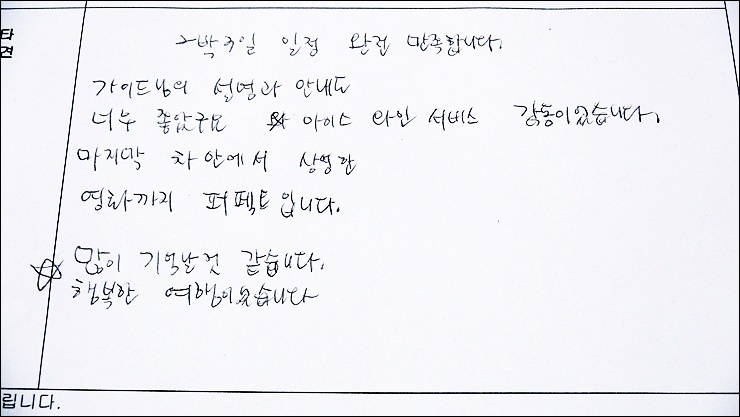 타
견
2박3일 일정 완전 만족합니다.
가이드님의 설명과 안내도
너무 좋았구요 아이스 와인 서비스 감동이었습니다.
마지막 차 안에서 상영한
영화까지 퍼펙트입니다.
많이 기억날것 같습니다.
행복한 여행이었습니다
립니다.